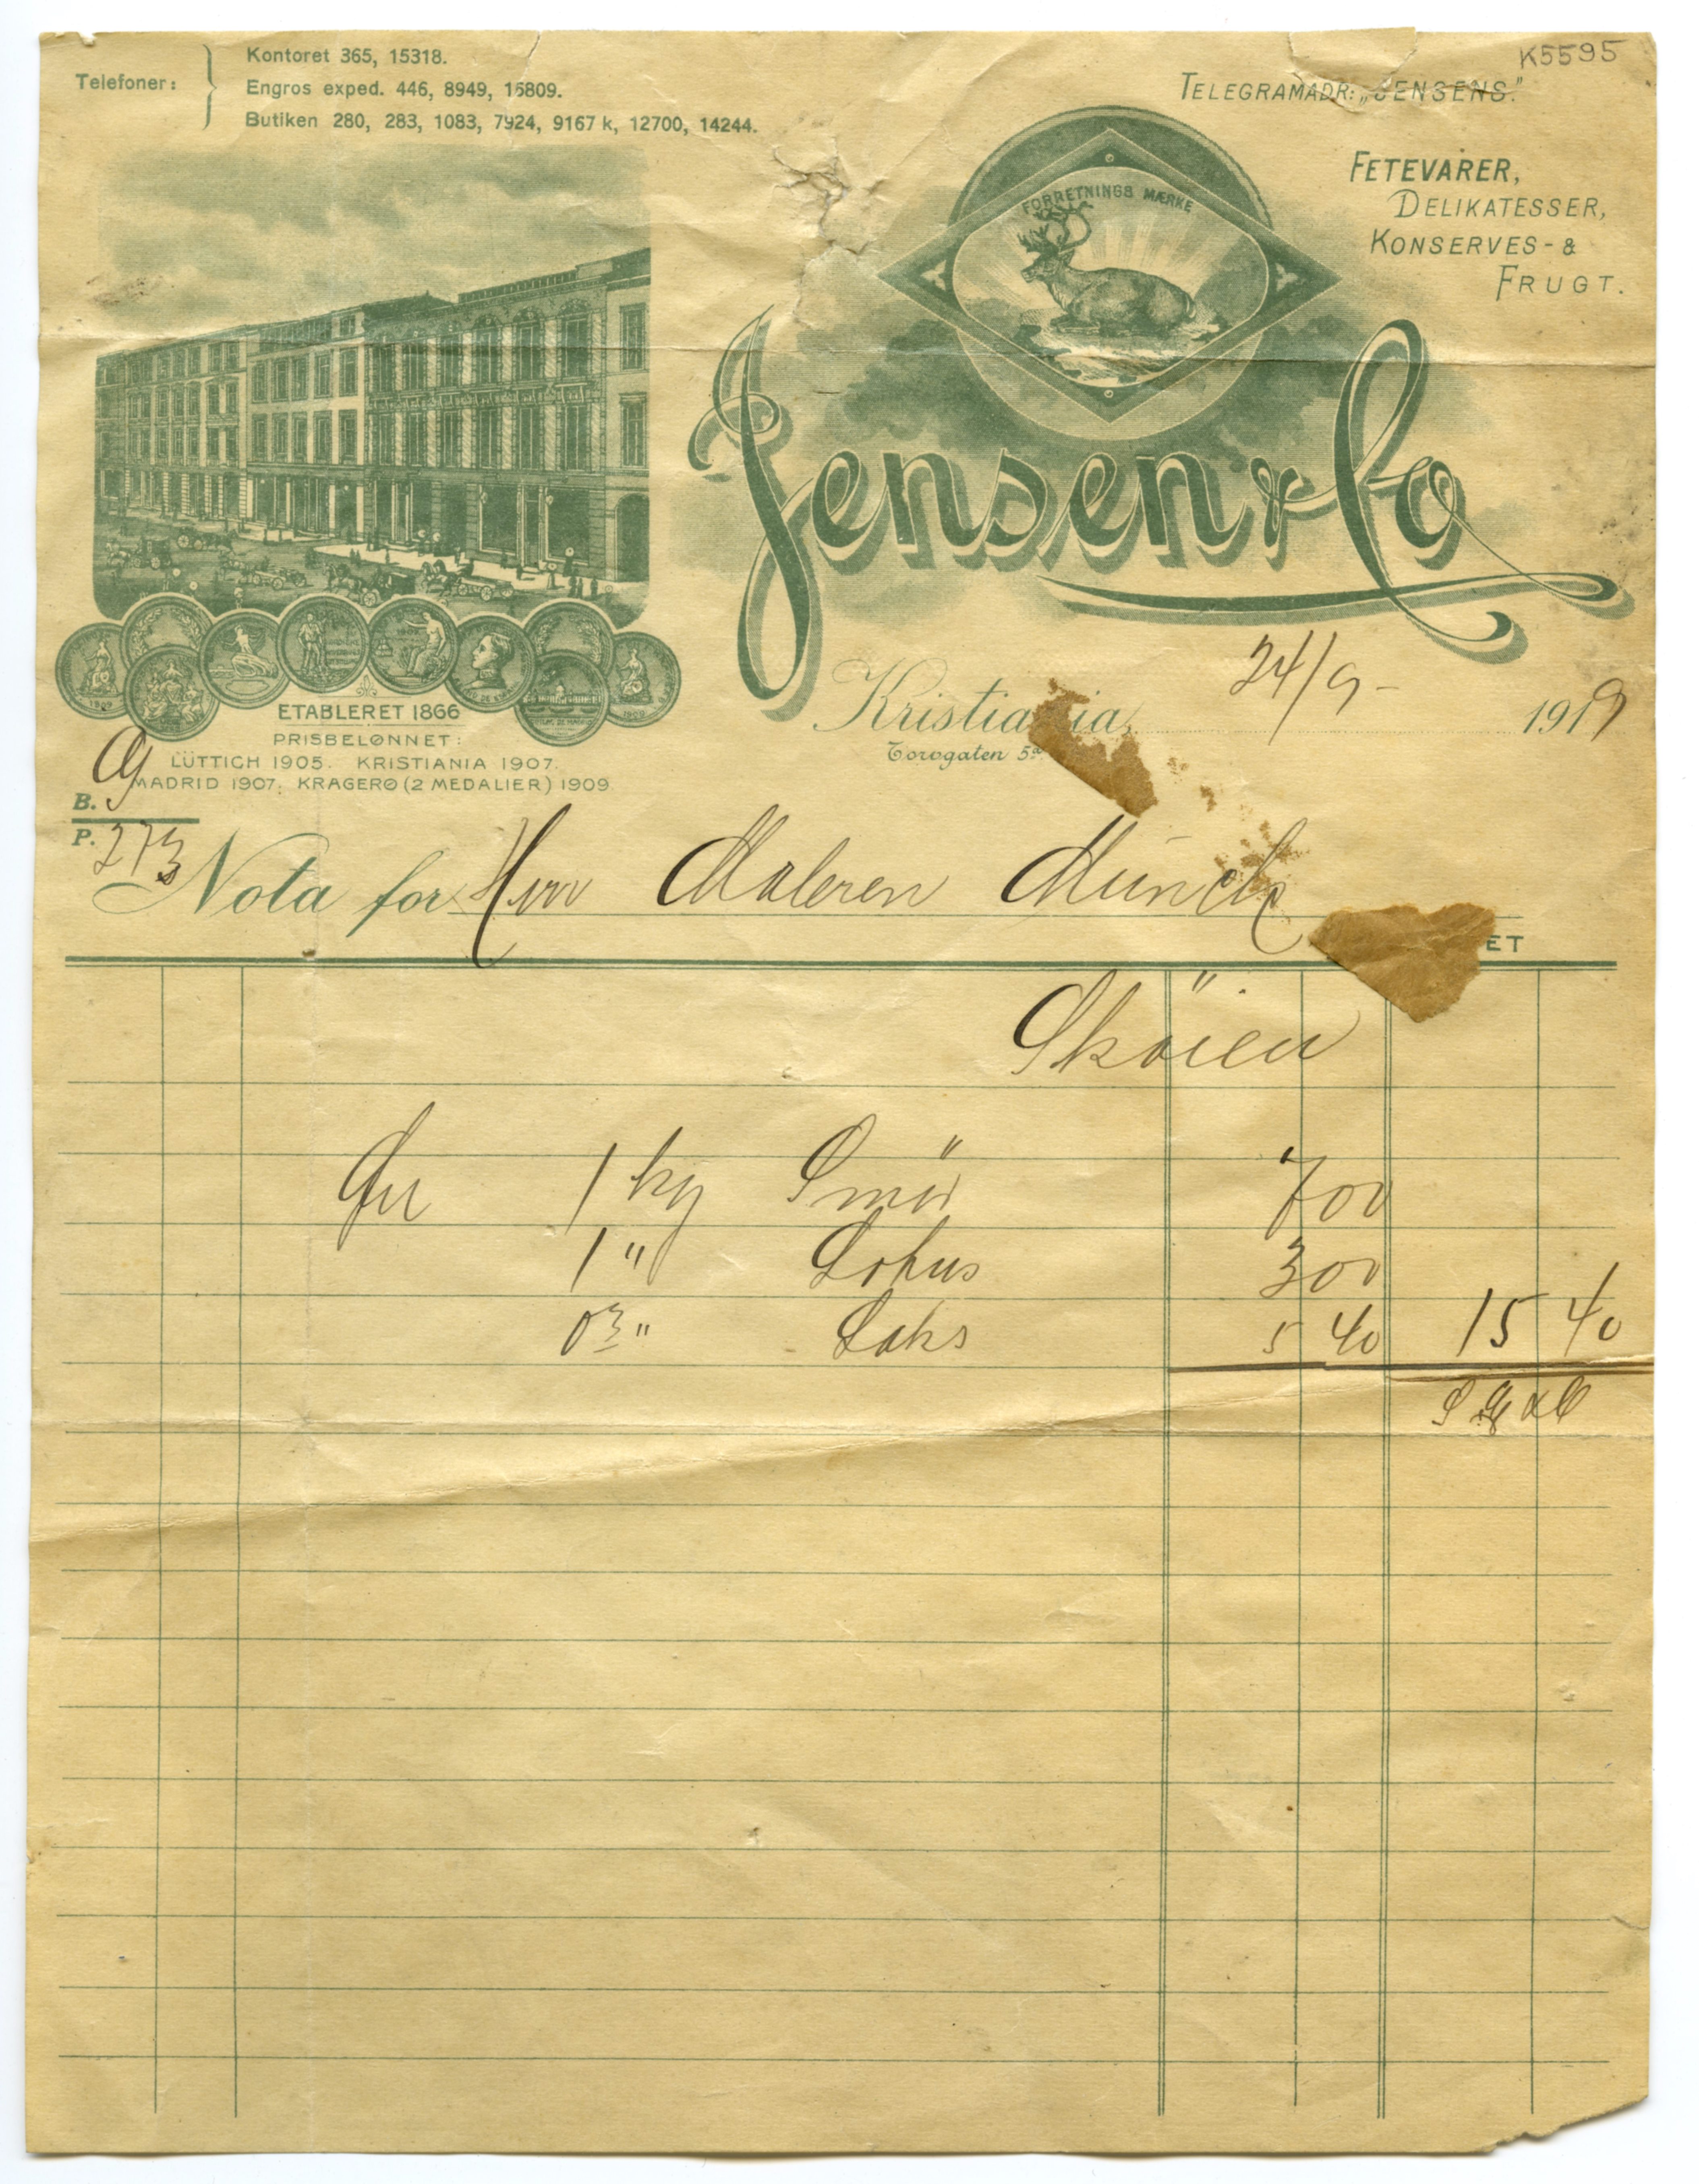 K5595
Telefoner:
Kontoret 365, 15318.
Engros exped. 446, 8949, 15809.
Butiken 280, 283, 1083, 7924, 9167 k, 12700, 14244.
TELEGRAMADR: „JENSENS."
FETEVARER,
DELIKATESSER,
KONSERVES- &
FRUGT.
FORRETNINGS MÆRKE
Jensen & Co
ETABLERET 1866
PRISBELØNNET:
LÜTTICH 1905. KRISTIANIA 1907.
MADRID 1907. KRAGERØ (2 MEDALIER) 1909
Kristiania, 24/9- 1919
Torvgaten 5a
B.
P. 273
Nota for Herr Maleren Munch
ET
Sköien
1 kg Smör 7 00
1 " Lokus 3 00
03 " Laks 5 40 15 40